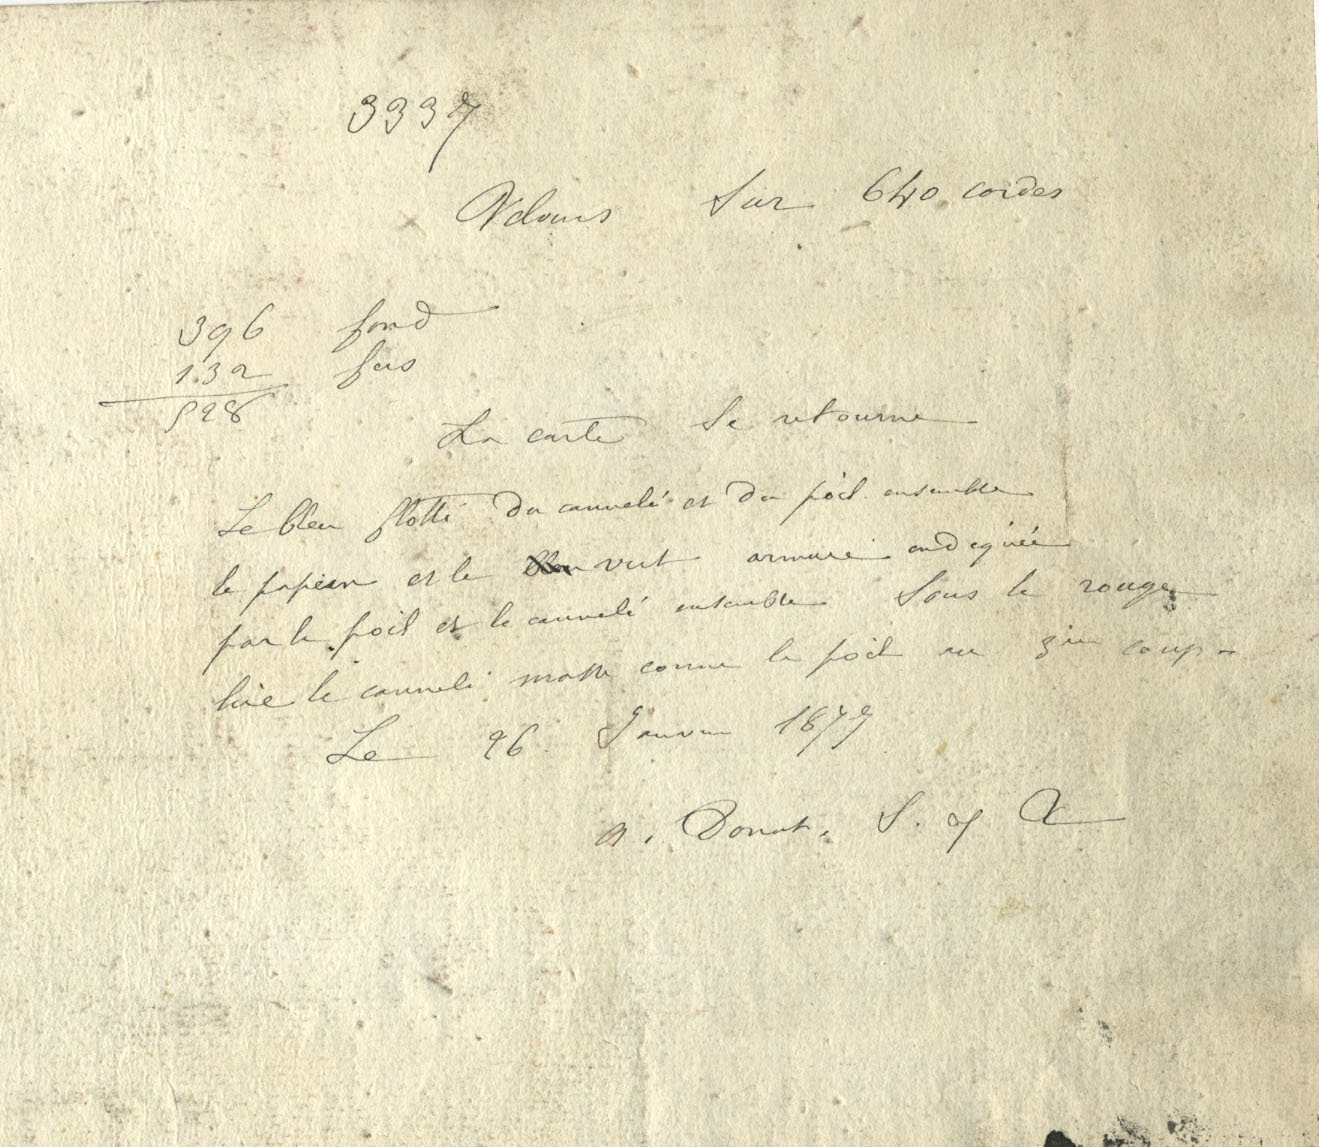 3337
Velours sur 640 cordes
396 fond
132 fers
528
La carte se retourne
Le bleu flotté du cannelé et du poil ensemble
le papier et le vert armure indiquée
par le poil et le cannelé ensemble Sous le rouge
lire le cannelé masse comme le poil au 3me coup
Le 26 Janvier 1877
Donat. S. &